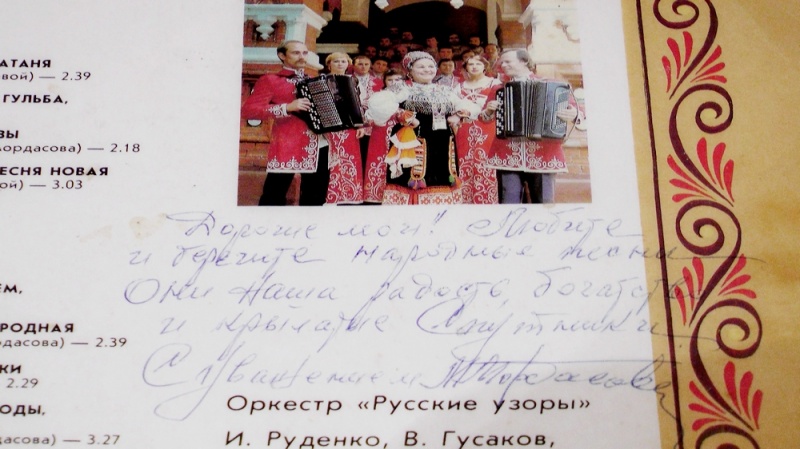 АТАНЯ
вой) — 2.39
ГУЛЬБА,
ЗЫ
Мордасова) — 2.18
ЕСНЯ НОВАЯ
ой) — 3.03
ЕМ,
РОДНАЯ
дасова) — 2.39
КИ
— 2.29
ОДЫ,
а) — 3.27
Дорогие мои! Любите
и берегите народные песни
Они наша радость, богатство
и крылатые Спутники
С уважением М Мордасова
Оркестр «Русские узоры»
И. Руденко, В. Гусаков,